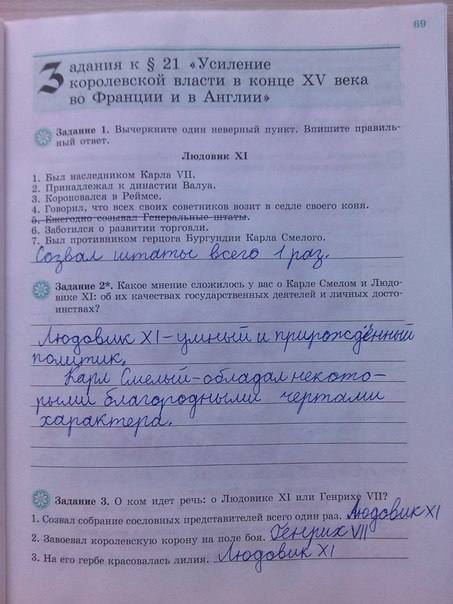 69
Задания к § 21 «Усиление
королевской власти в конце XV века
во Франции и в Англии»
Задание 1. Вычеркните один неверный пункт. Впишите правиль-
ный ответ.
Людовик XI
1. Был наследником Карла VII.
2. Принадлежал к династии Валуа.
3. Короновался в Реймсе.
4. Говорил, что всех своих советников возит в седле своего коня.
5. Ежегодно созывал Генеральные штаты.
6. Заботился о развитии торговли.
7. Был противником герцога Бургундии Карла Смелого.
Созвал штаты всего 1 раз.
Задание 2*. Какое мнение сложилось у вас о Карле Смелом и Людо-
вике XI: об их качествах государственных деятелей и личных досто-
инствах?
Людовик XI - умный и прирождённый
политик.
Карл Смелый - обладал некото-
рыми благородными чертами
характера.
Задание 3. О ком идет речь: о Людовике XI или Генрихе VII?
1. Созвал собрание сословных представителей всего один раз. Людовик XI
2. Завоевал королевскую корону на поле боя. Генрих VII
3. На его гербе красовалась лилия. Людовик XI